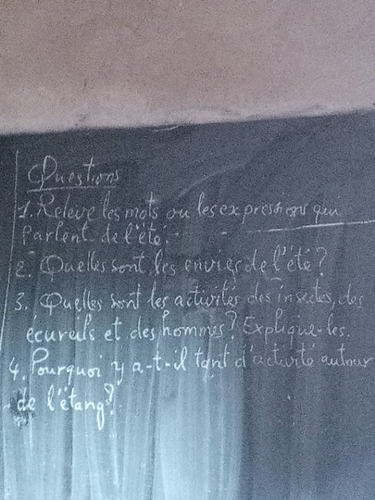 Questions
1. Relève les mots ou les expressions qui
parlent de l'été.
2. Quelles sont les envies de l'été?
3. Quelles sont les activités des insectes, des
écureuils et des hommes? Explique-les.
4. Pourquoi y a-t-il tant d'activité autour
de l'étang?